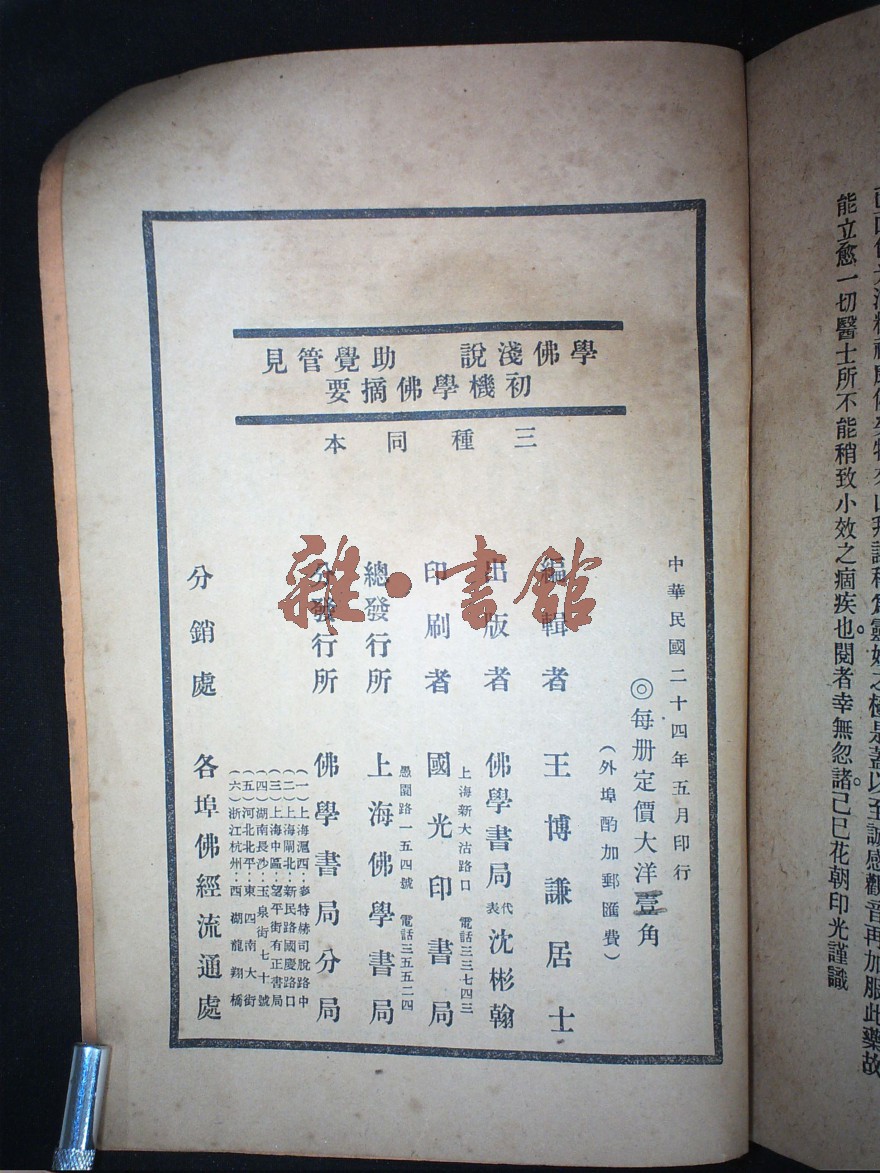 能立愈一切醫士所不能稍致小效之痼疾也。閱者幸無忽諸。己巳花朝印光謹識
學佛淺說　助覺管見
初機學佛摘要
三種同本
中華民國二十四年五月印行
◎每册定價大洋壹角
（外埠酌加郵匯費）
編輯者　王博謙居士
出版者　佛學書局代表沈彬翰
上海新大沽路口　電話三三七四三
印刷者　國光印書局
愚園路一五四號　電話三五五二四
總發行所　上海佛學書局
分發行所　佛學書局分局
（一）上海滬西·麥特赫司脫路中
（二）上海閘北·新民路國慶路口
（三）上海中區·望平街有正書局
（四）湖南長沙·玉泉街七十號
（五）河北北平·東四南大街
（六）浙江杭州·西湖龍翔橋
分銷處　各埠佛經流通處
雜·書館